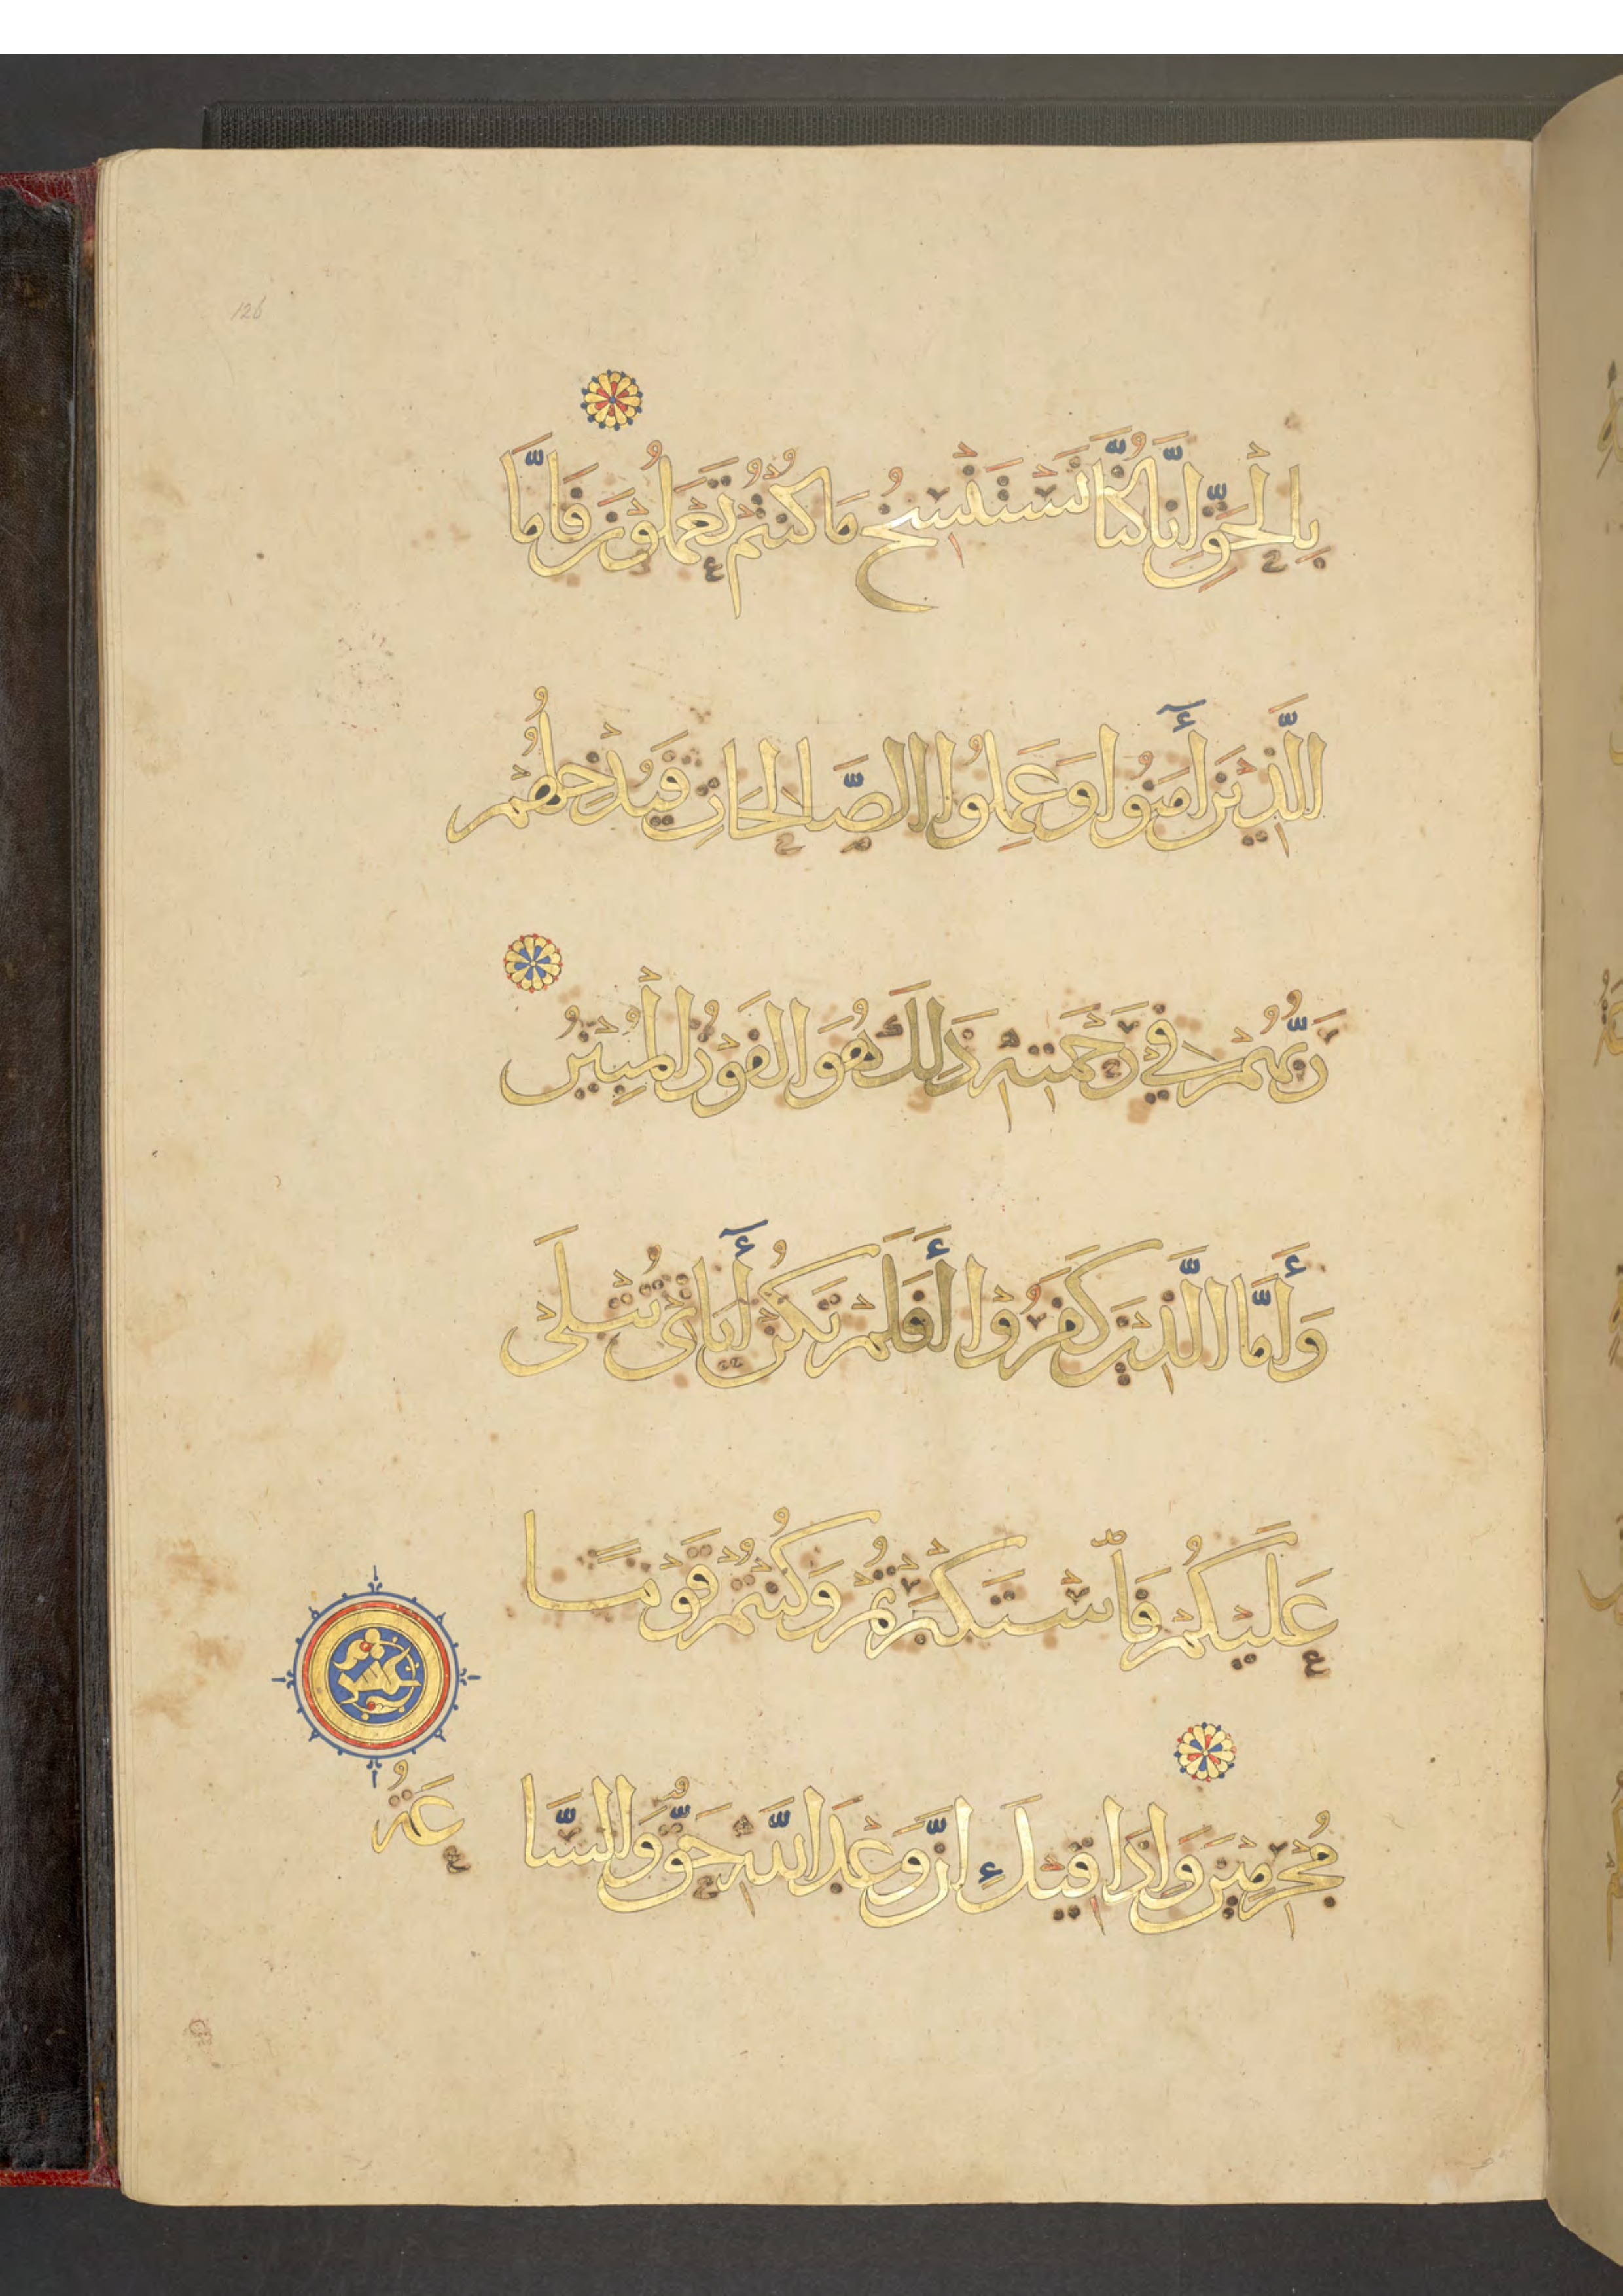 126
بِالْحَقِّ اِنَّا كُنَّا نَسْتَنْسِخُ مَا كُنْتُمْ تَعْمَلُوْنَ فَاَمَّا
الَّذِيْنَ أٓمَنُوا وَعَمِلُوُا الصَّالِحَاتِ فَيُدْخِلُهُمْ
رَبُّهُمْ فِيْ رَحْمَتِهٖ ذَلِكَ هُوَ الْفَوْزُ الْمُبِيْنُ
وَأَمَّا الَّذِيْنَ كَفَرُوْا أَفَلَمْ تَكُنْ أٓيَاتِيْ تُتْلَىْ
عَلَيْكُمْ فَاسْتَكْبَرْتُمْ وَكُنْتُمْ قَوْمًا
مُجْرِمِيْنَ وَاِذَا قِيْلَ اِنَّ وَعْدَ اللَّهِ حَقٌّ وَالسَّا
عَةُ